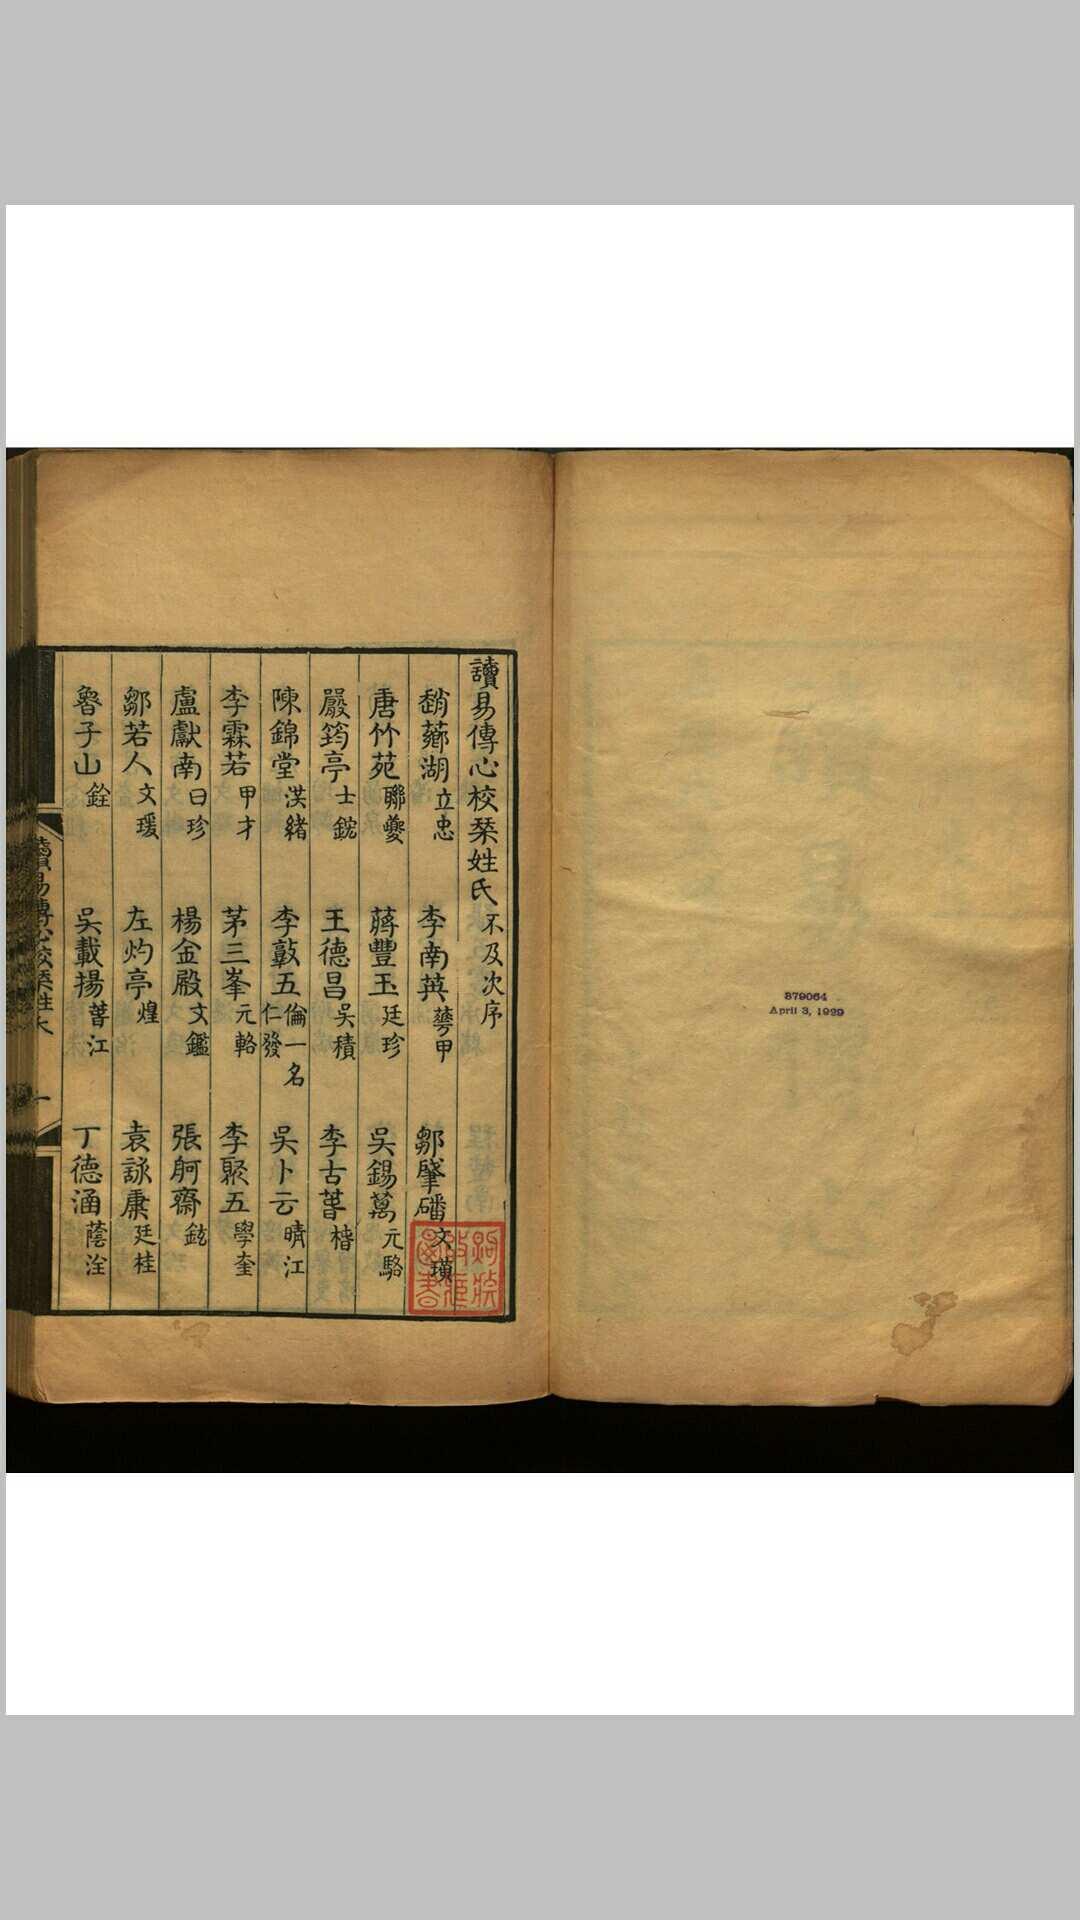 379064
April 3, 1929
讀易傳心校栞姓氏 不及次序
薌湖 立忠 李南英 蕚甲 鄒肇磻 文璜
唐竹苑 聯夔 蔣豐玉 廷珍 吳錫萬 元駱
嚴筠亭 士 王德昌 吳積 李古 楷
陳錦堂 洪緒 李敦五 倫一名仁發 吳卜云 晴江
李霖若 甲才 茅三峯 元輅 李聚五 學奎
盧獻南 日珍 楊金殿 文鑑 張舸齋 鉉
鄒若人 文瑗 左灼亭 煌 袁詠康 廷桂
魯子山 銓 吳載揚 江 丁德涵 蔭洤
讀易傳心校栞姓 一